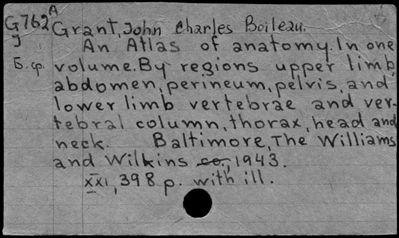 G762A Grant, John Charles Boileau.
J An Atlas of anatomy. In one
Б.ф. volume. By regions upper limb,
abdomen, perineum, pelvis, and
lower limb vertebrae and ver-
tebral column, thorax, head and
neck. Baltimore, The Williams
and Wilkins co., 1943.
xxi, 398 p. with ill.